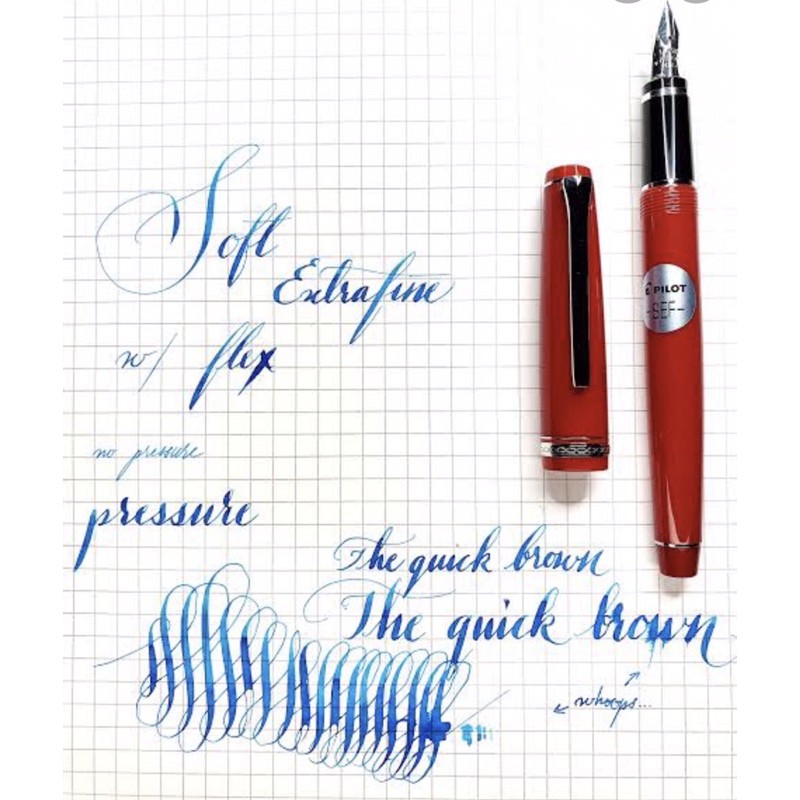 Soft
Extrafine
w/ flex
no pressure
pressure
The quick brown
The quick brown
← whoops... ↗
PILOT
-SEF-